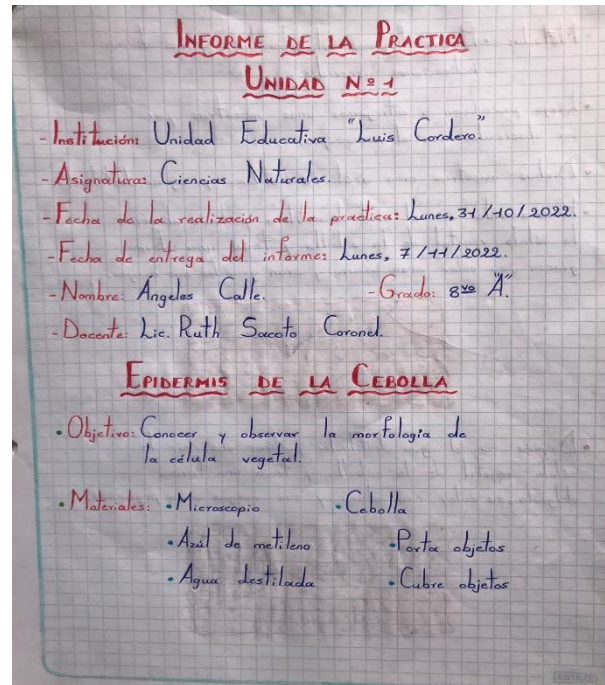 INFORME DE LA PRACTICA
UNIDAD Nº 1
- Institución: Unidad Educativa "Luis Cordero".
- Asignatura: Ciencias Naturales.
- Fecha de la realización de la practica: Lunes, 31/10/2022.
- Fecha de entrega del informe: Lunes, 7/11/2022.
- Nombre: Ángeles Calle. - Grado: 8vo "A".
- Docente: Lic. Ruth Sacoto Coronel.
EPIDERMIS DE LA CEBOLLA
• Objetivo: Conocer y observar la morfología de
la célula vegetal.
• Materiales: • Microscopio • Cebolla
• Azúl de metileno • Porta objetos
• Agua destilada • Cubre objetos